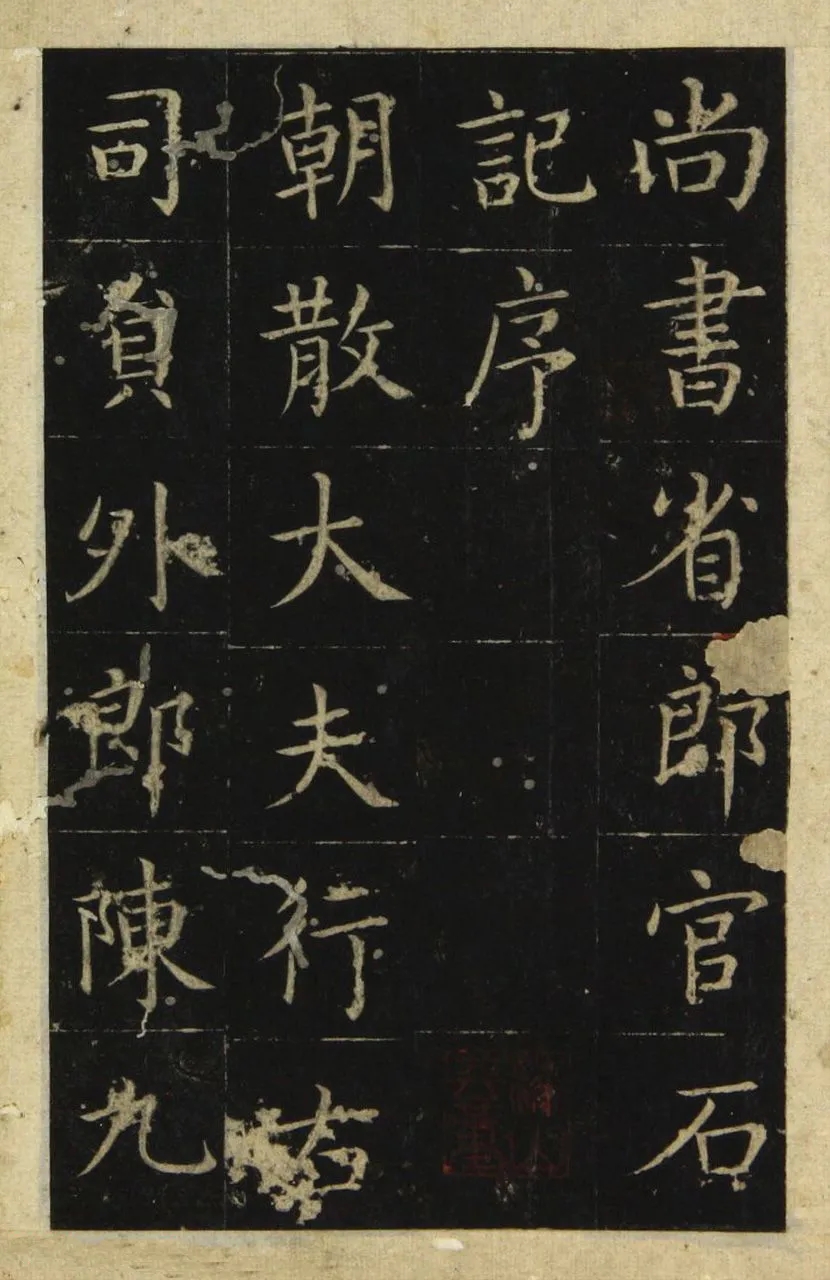 尚書省郎官石
記序
朝散大夫行右
司員外郎陳九